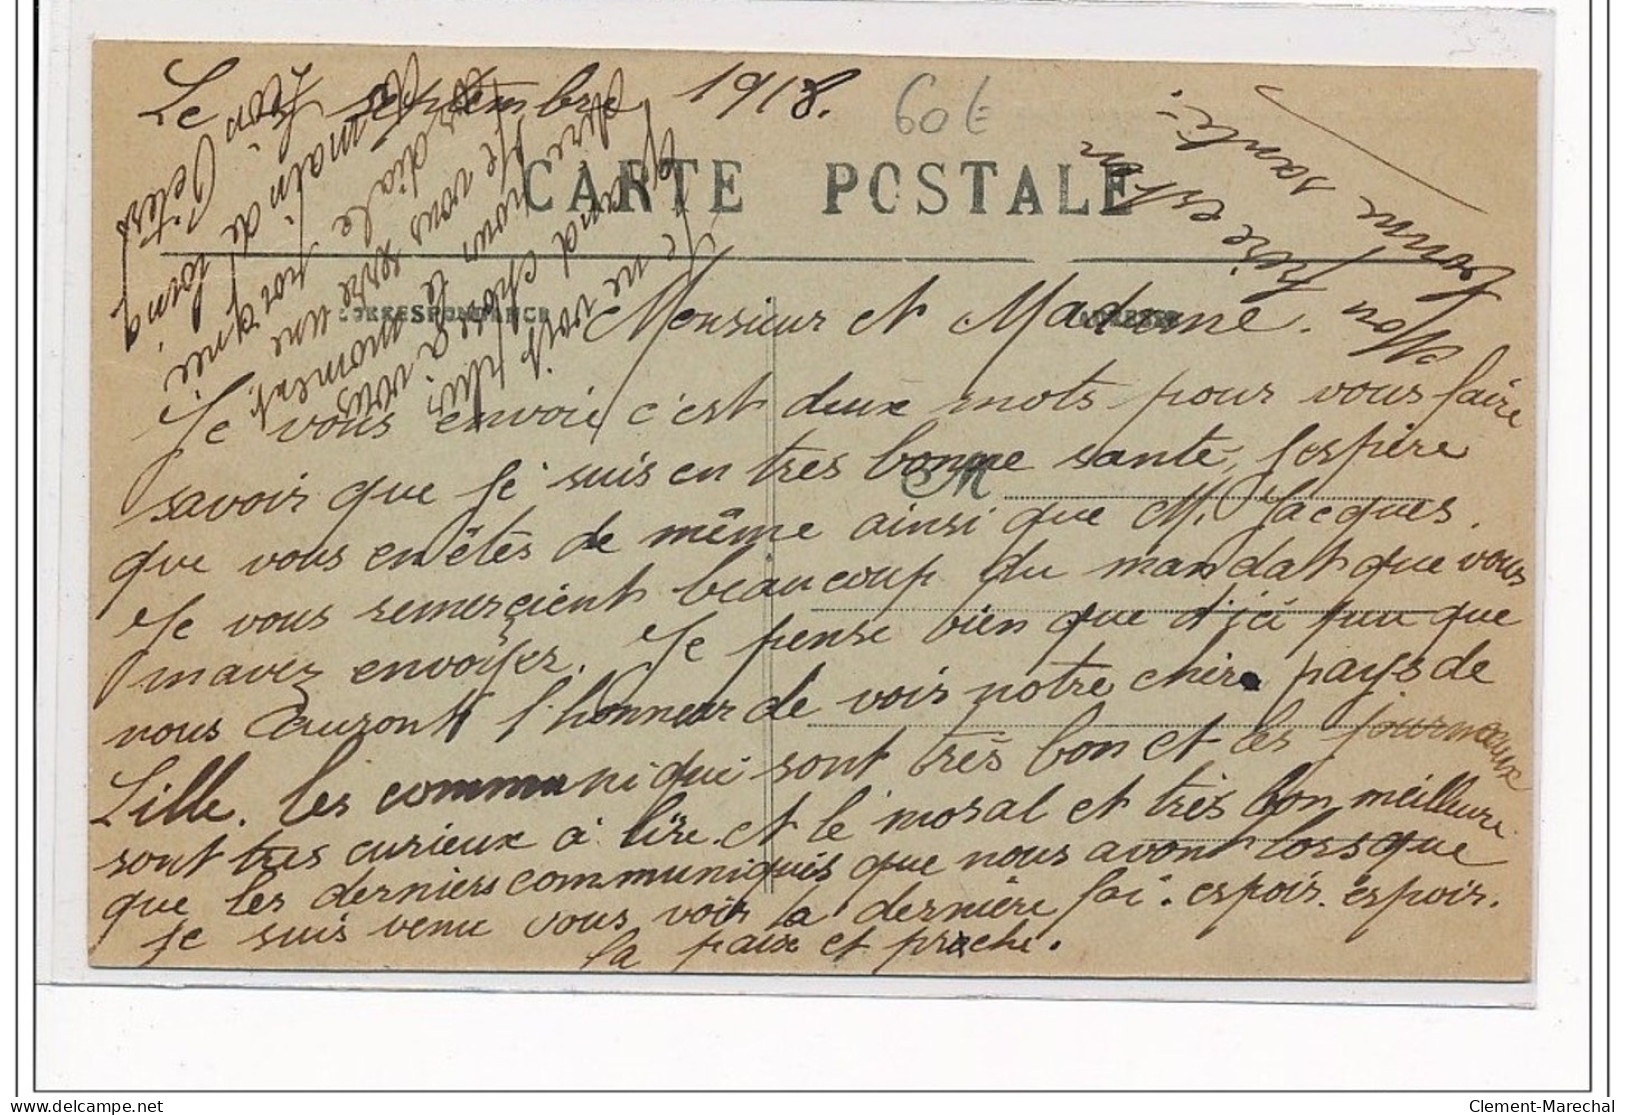 Le 7 septembre 1918.
60€
CARTE POSTALE
CORRESPONDANCE
Monsieur et Madame.
Je vous envoie c'est deux mots pour vous faire
savoir que Je suis en tres bonne sante, J'espère
que vous en êtes de même ainsi que M. Jacques.
Je vous remerçient beaucoup du mandat que vous
mavez envoyez. Je pense bien que d'içi peu que
nous auront l'honneur de voir notre chère pays de
Lille. les communiqui sont très bon et les journaux
sont tres curieux à lire et le moral et très bon meilleure
que les derniers communiqués que nous avont lorsque
je suis venu vous voir la dernière foi. espoir. espoir.
la paix et proche.
Je ne voit plus
grand chose à vous
dire pour le moment,
Je vous serre une
cordiale poignée
main de loin,
Mon frère est en
bonne santé.
M
Clement-Marechal